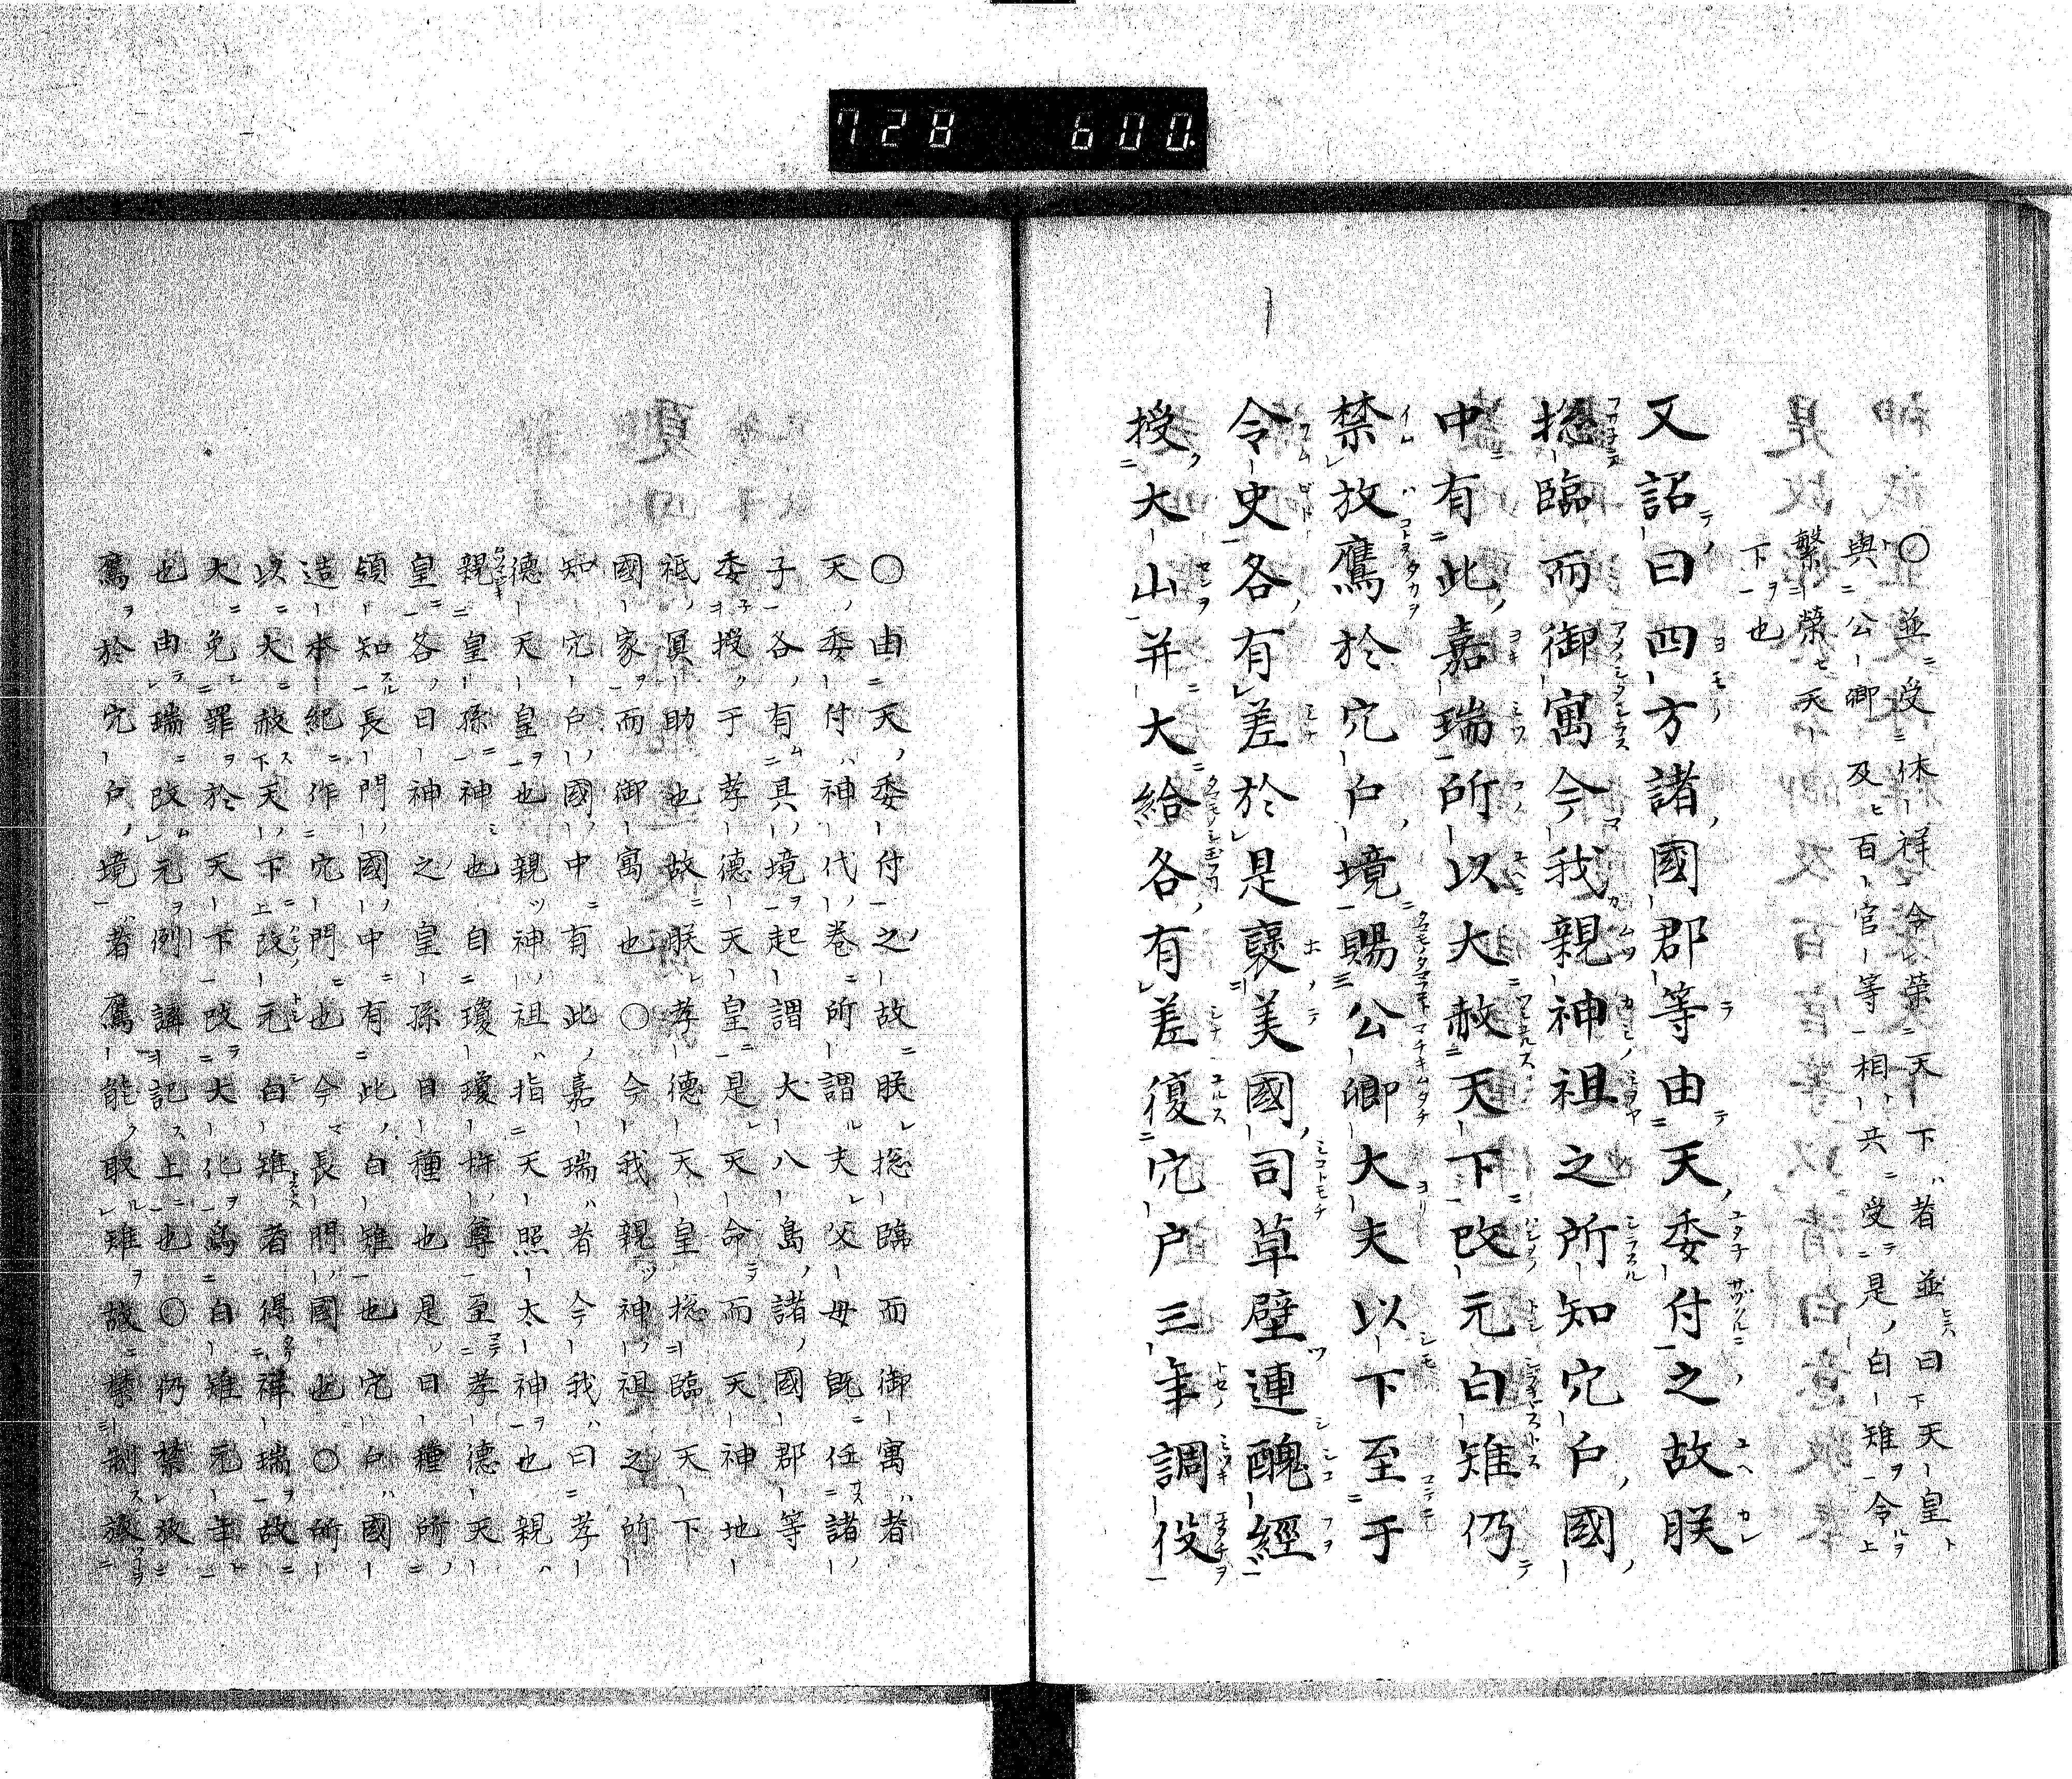 728 600.
○並受休祥令榮天下者並曰天皇
與公卿及百官等相共受是白雉令
繁榮天
下也
又詔曰四方諸國郡等由天委付之故朕
捴臨而御寓今我親神祖之所知穴戸國
中有此嘉瑞所以大赦天下改元白雉仍
禁放鷹於穴戸境賜公卿大夫以下至于
令史各有差於是褒美國司草壁連醜經
授大山并大給各有差復穴戸三年調役
○由天委付之故朕捴臨而御寓者
天委付神代卷所謂夫父母既任諸
子各有其境起謂大八島諸國郡等
委授于孝德天皇是天命而天神地
祇冥助也故朕孝德天皇捴臨天下
國家而御寓也○今我親神祖之所
知穴戸國中有此嘉瑞者今我曰孝
德天皇也親神祖指天照太神也親
親皇孫神也自瓊瓊杵尊至孝德天
皇各曰神之皇孫日種也是曰種所
領知長門國中有此白雉也穴戸國
造本紀作穴門也今長門國也○所
以大赦天下改元白雉者得祥瑞故
大免罪於天下改大化爲白雉元年
也由瑞改元例講記上也○仍禁放
鷹於穴戸境者鷹能取雉故禁制放